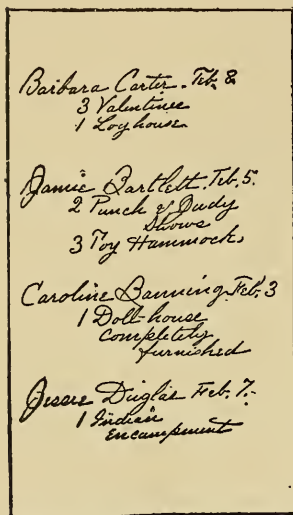 Barbara Carter. Feb. 8
3 Valentines
1 Log house
Jamie Bartlett. Feb. 5.
2 Punch & Judy
Shows
3 Toy Hammocks
Caroline Banning. Feb. 3
1 Doll-house
completely
furnished
Jessie Duglas Feb. 7.
1 Indian
Encampment